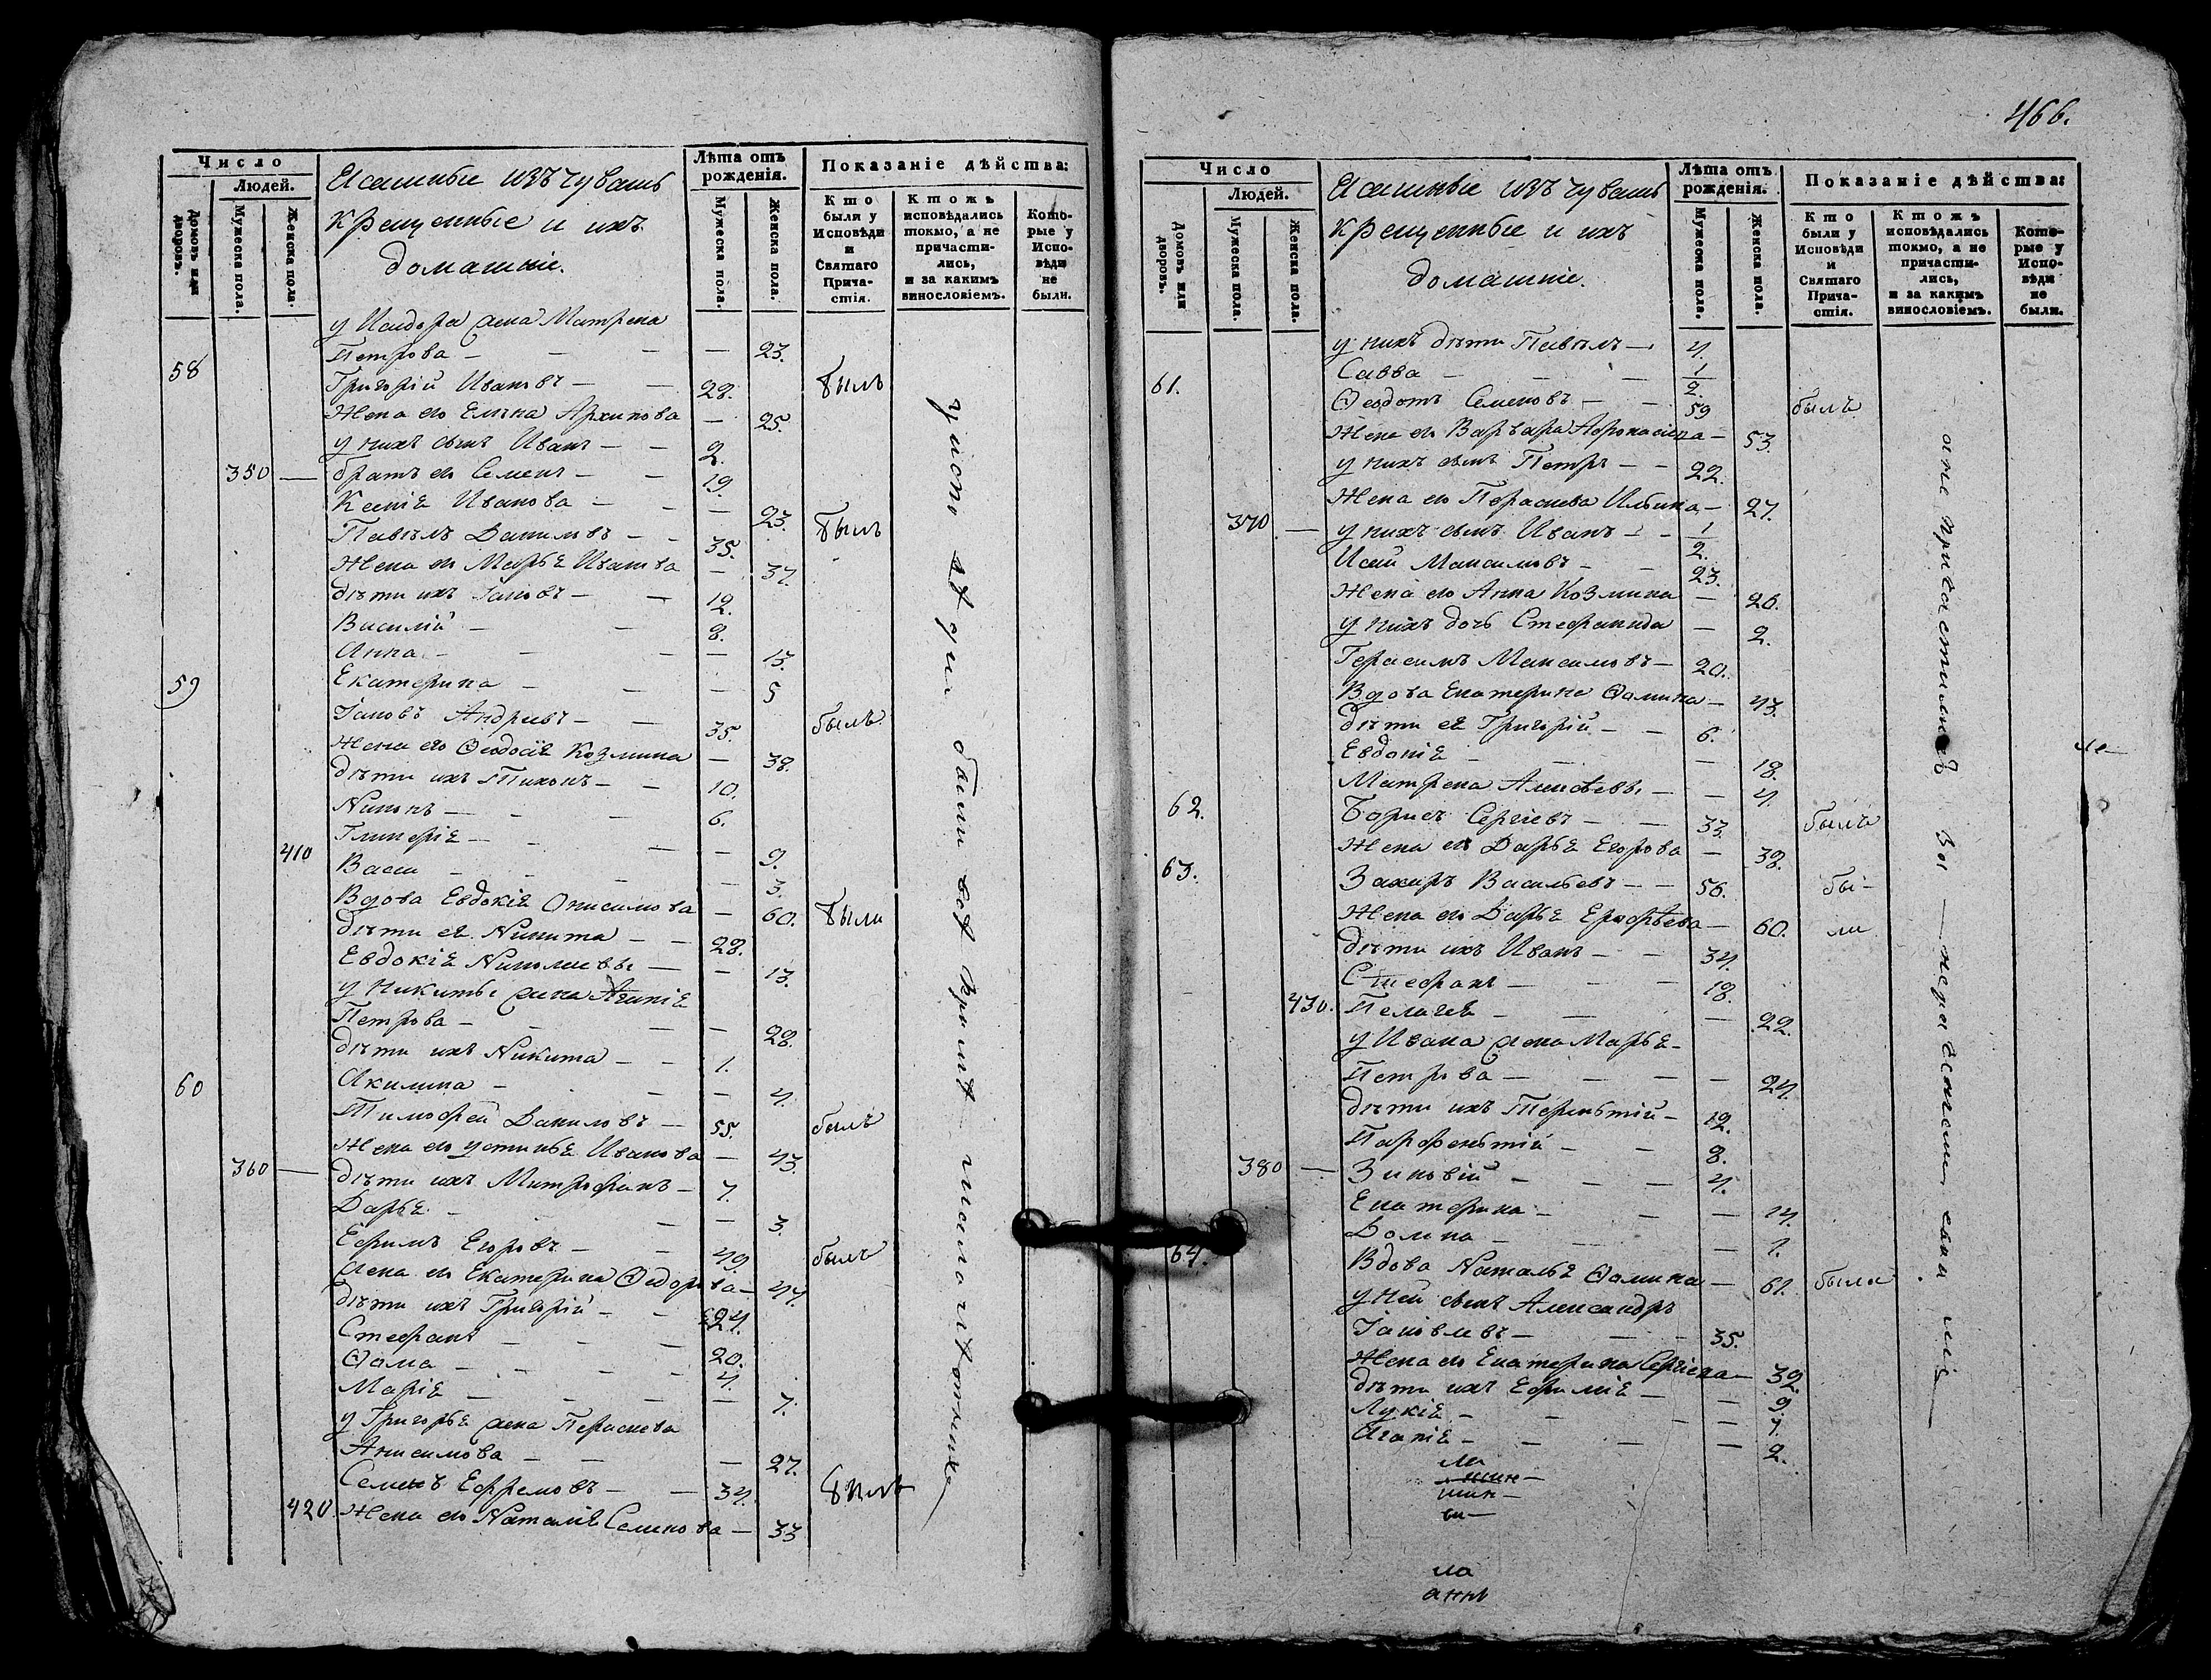 Число
Людей.
Домовъ или дворовъ.
Мужеска пола.
Женска пола.
Ясашные изъ чувашъ
крещенные и ихъ
домашніе.
Лѣта отъ рожденія.
Мужеска пола.
Женска пола.
Показаніе дѣйства:
Кто были у Исповѣди и Святаго Прича-стія.
Ктожъ исповѣдались токмо, а не причасти-лись, и за какимъ винословіемъ.
Кото-рые у Испо-вѣди не были.
у Исидора жена Матрена
Петрова — — — — 23.
58 Григорій Ивановъ — — 28. былъ
Жена его Елена Архипова — 25.
у нихъ сынъ Иванъ — — 2.
350 — братъ его Семенъ — — 19.
Ксенія Иванова — — — 23.
Павелъ Даниловъ — — 35. былъ
Жена его Марья Иванова — 37.
дѣти ихъ Іаковъ — — 12.
Василій — — 8.
Анна — — — — 13.
59 Екатерина — — — 5
Іаковъ Андреевъ — — 35. былъ
Жена его Ѳеодосія Козмина — 38.
дѣти ихъ Тихонъ — — 10.
Никонъ — — — 6.
Гликерія — — — — 9.
410 Васса — — — — 3.
Вдова Евдокія Онисимова — 60. были
дѣти ея Никита — — 28.
Евдокія — — 13.
у Никиты жена Агапія
Петрова — — — — 28.
дѣти ихъ Никита — — 1.
Акилина — — — 4.
60 Тимофей Даниловъ — 55. былъ
Жена его Устинья Иванова — 43.
360 — дѣти ихъ Митрофанъ — 7.
Дарья — — — 3.
Ефимъ Егоровъ — — 49. былъ
Жена его Екатерина Ѳедорова — 44.
дѣти ихъ Григорій — — 24.
Стефанъ — — — 20.
Ѳома — — — — 4.
Марія — — — — 7.
у Григорья жена Параскева
Анисимова — — — 27.
Семенъ Ефремовъ — — 34. былъ
420. Жена его Наталія Семенова — 33
466.
Число
Людей.
Домовъ или дворовъ.
Мужеска пола.
Женска пола.
Ясашные изъ чувашъ
крещенные и ихъ
домашніе.
Лѣта отъ рожденія.
Мужеска пола.
Женска пола.
Показаніе дѣйства:
Кто были у Исповѣди и Святаго Прича-стія.
Ктожъ исповѣдались токмо, а не причасти-лись, и за какимъ винословіемъ.
Кото-рые у Испо-вѣди не были.
у нихъ дѣти Павелъ — 4.
Савва — — — 1/2.
61. Ѳеодотъ Семеновъ — — 59 былъ
Жена его Варвара — 53.
у нихъ сынъ Петръ — — 22.
Жена его Параскева Ильина — 27.
370 — у нихъ сынъ Иванъ — — 1/2.
Исай Максимовъ — — 23.
Жена его Анна Козмина — 26.
у нихъ дочь Стефанида — 2.
Герасимъ Максимовъ — 20.
Вдова Екатерина Ѳомина — 43.
дѣти ея Григорій — — 6.
Евдокія — — — 18.
Матрена — — 4.
62. Борисъ Сергѣевъ — — 33. былъ
Жена его Дарья Егорова — 38.
63. Захаръ Васильевъ — — 56. бы-
Жена его Дарья — 60. ли
дѣти ихъ Иванъ — — 34.
Стефанъ — — — 18.
430. Пелагея — — — 22.
у Ивана жена Марья —
Петрова — — — — 24.
дѣти ихъ Терентій — 12.
Парфентій — — 8.
380 — Зиновій — — — 4.
Екатерина — — — 14.
Домна — — — 1.
64. Вдова Наталья Ѳомина — 61. была
у ней сынъ Александръ
Іаковлевъ — — — 35.
Жена его Екатерина — 32.
дѣти ихъ Ефимія — — 9
Лукія — — — 7.
Агапія — — — 2.
ла